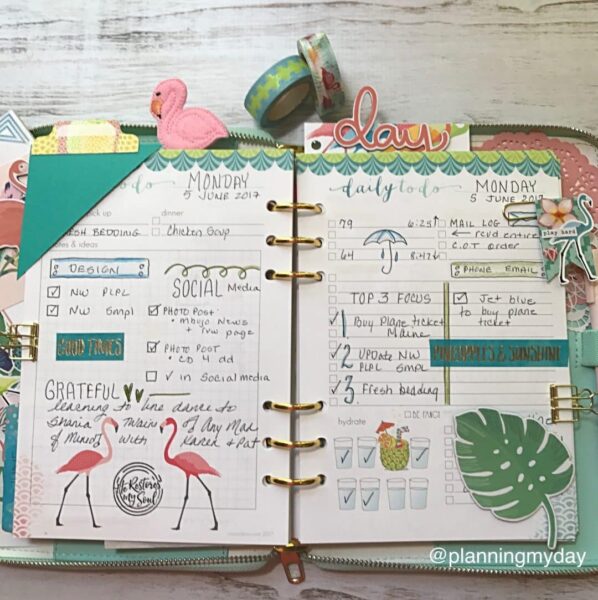 day
to do
MONDAY
5 JUNE 2017
pick up
dinner
FRESH BEDDING
Chicken Soup
notes & ideas
DESIGN
NW PLPL
NW Smpl
GOOD TIMES
SOCIAL Media
PHOTO POST
• mbyjo News
+ TNW page
PHOTO POST
• CD 4 dd
✓ in Social media
GRATEFUL
learning to line dance to
Shania Twain's
of Any Man
of Mine with
Karen & Pat
He Restores
My Soul
daily to do
MONDAY
5 JUNE 2017
79
6:25↑
64
8:47↓
MAIL LOG
← rcvd entire
C.O.T order
play hard
PHONE EMAIL
Jet blue
to buy plane
ticket
TOP 3 FOCUS
1 Buy Plane ticket
Maine
2 UPDATE NW
PLPL SMPL
3 Fresh bedding
PINEAPPLES & SUNSHINE
hydrate
@planningmyday